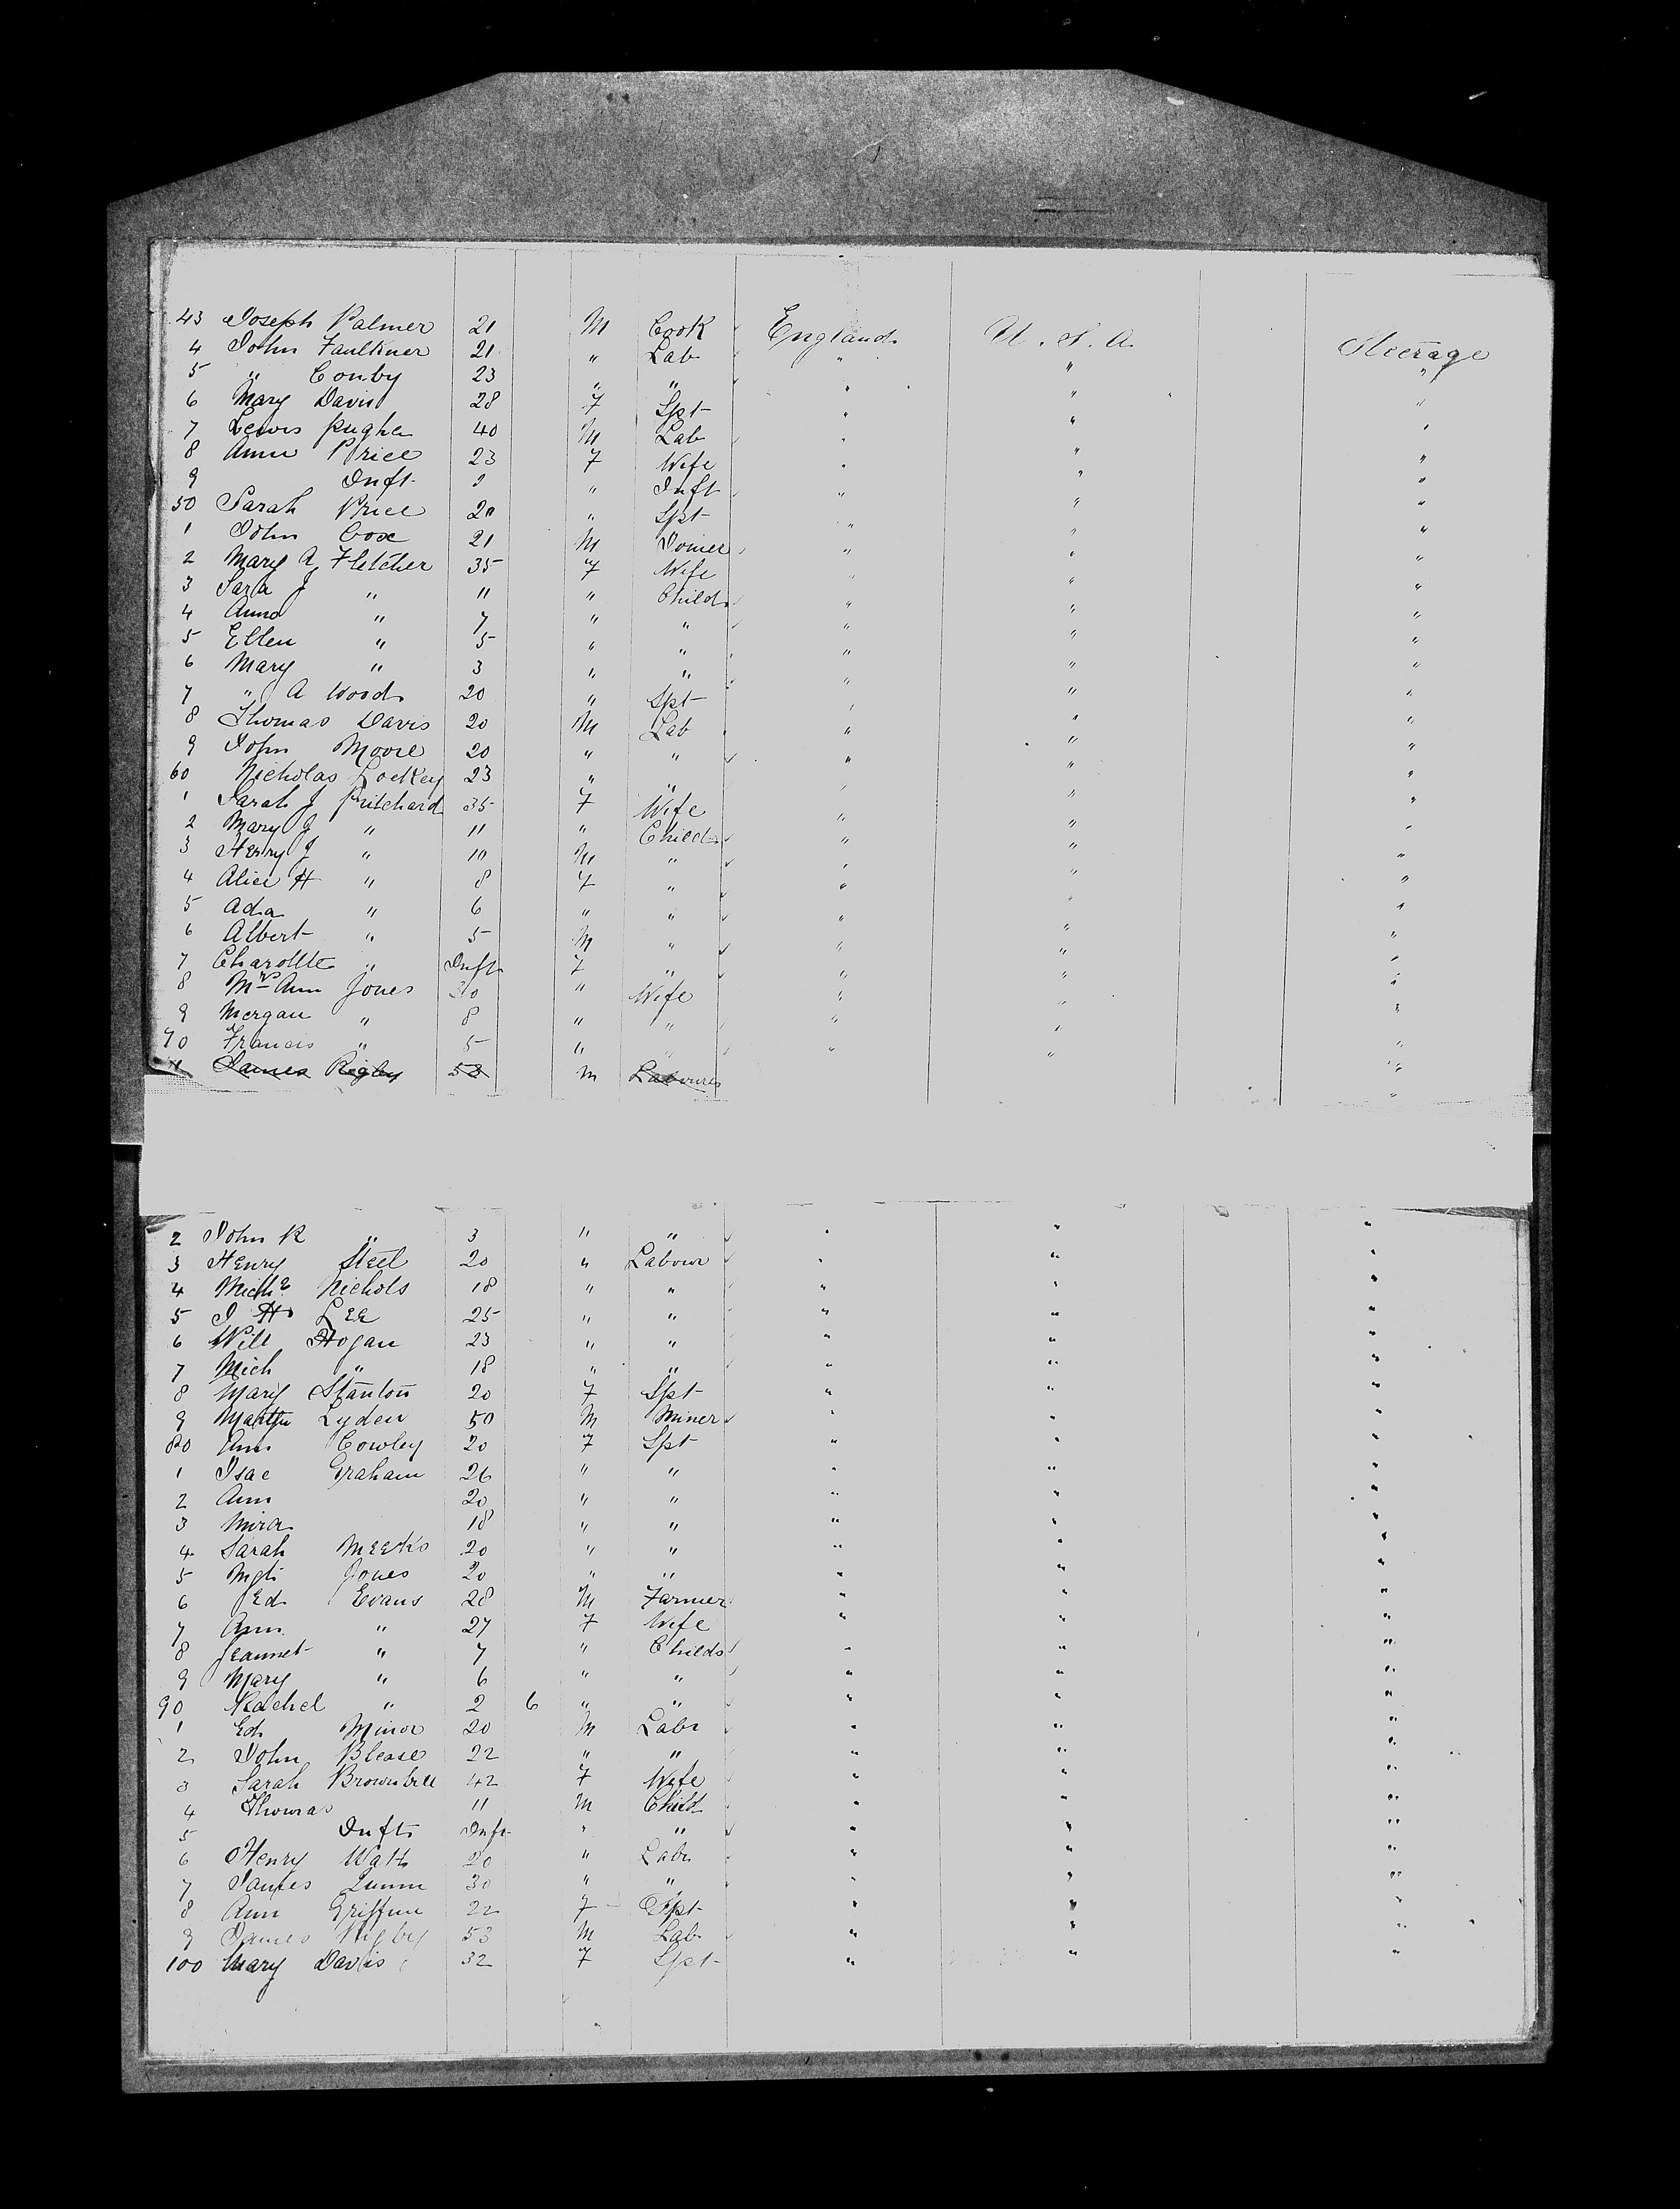 43 Joseph Palmer 21 M Cook England U.S.A. Steerage
4 John Faulkner 21 " Lab " " "
5 " Conby 23 " " " " "
6 Mary Davis 28 F Spt " " "
7 Lewis Pughe 40 M Lab " " "
8 Anne Price 23 F Wife " " "
9 Inft " Inft " " "
50 Sarah Price 20 " Spt " " "
1 John Cox 21 M Joiner " " "
2 Mary A Fletcher 35 F Wife " " "
3 Sara J " 11 " Child " " "
4 Anna " 7 " " " " "
5 Ellen " 5 " " " " "
6 Mary " 3 " " " " "
7 " A Woods 20 " Spt " " "
8 Thomas Davis 20 M Lab " " "
9 John Moore 20 " " " " "
60 Nicholas Lockey 23 " " " " "
1 Sarah J Pritchard 35 F Wife " " "
2 Mary J " 11 " Child " " "
3 Henry J " 10 M " " " "
4 Alice H " 8 F " " " "
5 Ada " 6 " " " " "
6 Albert " 5 M " " " "
7 Charollte " Inft F " " " "
8 Mrs Ann Jones 30 " Wife " " "
9 Morgan " 8 " " " " "
70 Francis " 5 " " " " "
1 James Rigby 53 M Labourer "
2 John R " 3 " " " " "
3 Henry Steel 20 " Labour " " "
4 Nichols 18 " " " " "
5 J H Lee 25 " " " " "
6 Will Hogan 23 " " " " "
7 Mich " 18 " " " " "
8 Mary Stanton 20 F Spt " " "
9 Lyden 50 M Miner " " "
80 Ann Cowley 20 F Spt " " "
1 Isac Graham 26 " " " " "
2 Ann 20 " " " " "
3 Mira 18 " " " " "
4 Sarah Meeks 20 " " " " "
5 Mgt Jones 20 " " " " "
6 Ed Evans 28 M Farmer " " "
7 Ann " 27 F Wife " " "
8 Jeannet " 7 " Childs " " "
9 Mary " 6 " " " " "
90 Rachel " 2 6 " " " " "
1 Ed Minor 20 M Labr " " "
2 John Blease 22 " " " " "
3 Sarah Brownbill 42 F Wife " " "
4 Thomas 11 M Child " " "
5 Inft Inft " " " " "
6 Henry Watts 20 " Labr " " "
7 James Lunn 30 " " " " "
8 Ann Griffin 22 F Spt " " "
9 James Rigby 53 M Lab " " "
100 Mary Davis 32 F Spt " " "